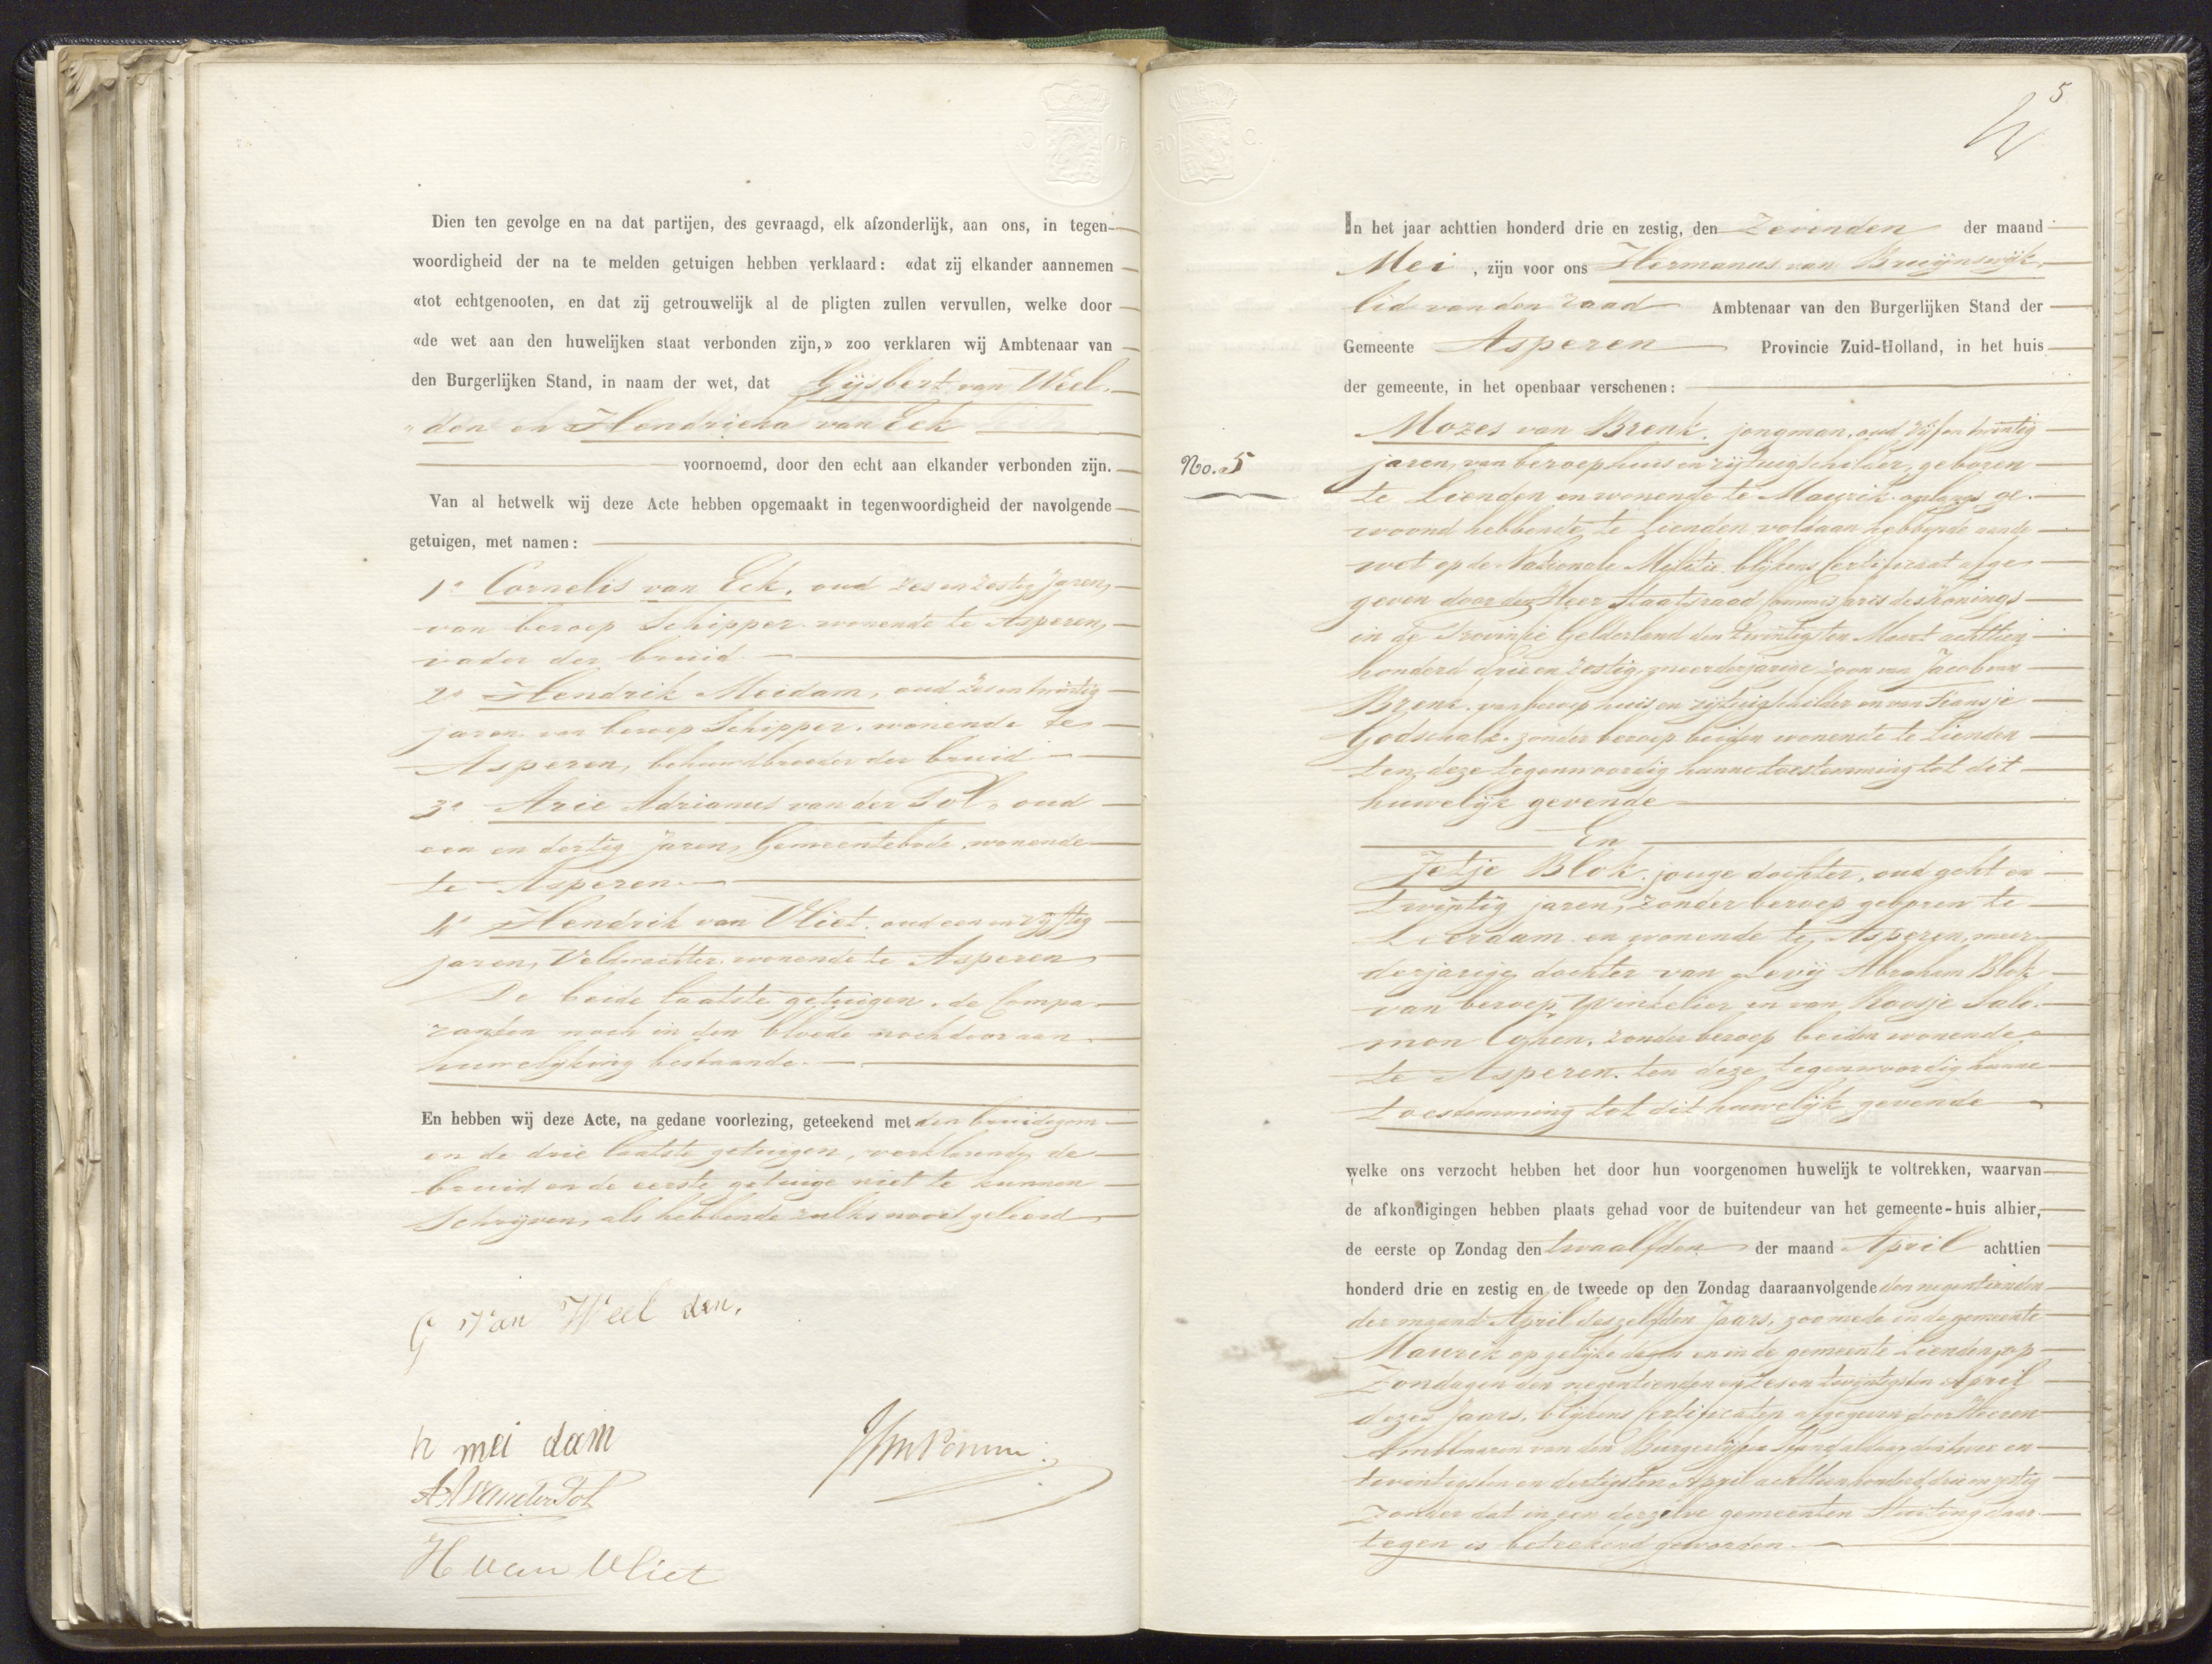 Dien ten gevolge en na dat partijen, des gevraagd, elk afzonderlijk, aan ons, in tegen-
woordigheid der na te melden getuigen hebben verklaard: «dat zij elkander aannemen
«tot echtgenooten, en dat zij getrouwelijk al de pligten zullen vervullen, welke door
«de wet aan den huwelijken staat verbonden zijn,» zoo verklaren wij Ambtenaar van
den Burgerlijken Stand, in naam der wet, dat Gijsbert van Weel-
"den en Hendrieka van Eck
voornoemd, door den echt aan elkander verbonden zijn.
Van al hetwelk wij deze Acte hebben opgemaakt in tegenwoordigheid der navolgende
getuigen, met namen:
1o Cornelis van Eck, oud zes en zestig jaren,
van beroep Schipper wonende te Asperen,
vader der bruid
2o Hendrik Meidam, oud zes en twintig
jaren van beroep Schipper, wonende te
Asperen, behuwdbroeder der bruid
3o Arie Adrianus van der Pol, oud
een en dertig jaren, Gemeentebode, wonende
te Asperen.
4o Hendrik van Vliet, oud een en vijftig
jaren, Veldwachter, wonende te Asperen
De beide laatste getuigen, de Compa-
ranten noch in den bloede noch door aan
huwelijking bestaande.
En hebben wij deze Acte, na gedane voorlezing, geteekend met den bruidegom
en de drie laatste getuigen, verklarende de
bruid en de eerste getuige niet te kunnen
Schrijven, als hebbende zulks nooit geleerd
G Van Weel den,
h mei dam
AA van der Pol
H van Vliet
5
In het jaar achttien honderd drie en zestig, den Zevenden der maand
Mei, zijn voor ons Hermanus van Bruijnswijk,
lid van den raad Ambtenaar van den Burgerlijken Stand der
Gemeente Asperen Provincie Zuid-Holland, in het huis
der gemeente, in het openbaar verschenen:
No. 5
Mozes van Brenk, jongman, oud vijf en twintig
jaren, van beroep huis en rijtuigschilder, geboren
te Lienden en wonende te Maurik onlangs ge-
woond hebbende te Lienden voldaan hebbende aan de
wet op de Nationale Militie blijkens Certificaat afge-
geven door den Heer Staatsraad Commissaris des Konings
in de Provincie Gelderland den twintigsten Maart achttien
honderd drie en zestig, meerderjarige zoon van Jacob van
Brenk, van beroep huis en rijtuigschilder en van Fransje
Godschalk, zonder beroep beiden wonende te Lienden
ten deze tegenwoordig hunne toestemming tot dit
huwelijk gevende
En
Jetje Blok, jonge dochter, oud acht en
twintig jaren, zonder beroep geboren te
Leerdam en wonende te Asperen, meer-
derjarige dochter van Levij Abraham Blok
van beroep Winkelier en van Roosje Salo-
mon Cohen, zonder beroep beiden wonende
te Asperen, ten deze tegenwoordig hunne
toestemming tot dit huwelijk gevende
welke ons verzocht hebben het door hun voorgenomen huwelijk te voltrekken, waarvan
de afkondigingen hebben plaats gehad voor de buitendeur van het gemeente-huis alhier,
de eerste op Zondag den twaalfden der maand April achttien
honderd drie en zestig en de tweede op den Zondag daaraanvolgende den negentienden
der maand April deszelfden Jaars, zoo mede in de gemeente
Maurik op gelijke dagen en in de gemeente Lienden, op
Zondagen den negentienden en zes en twintigsten April
dezes Jaars, blijkens Certificaten afgegeven door Heeren
Ambtenaren van den Burgerlijken Stand aldaar den twee en
twintigsten en dertigsten April achttien honderd drie en zestig
zonder dat in een derzelve gemeenten Stuiting daar-
tegen is beteekend geworden.